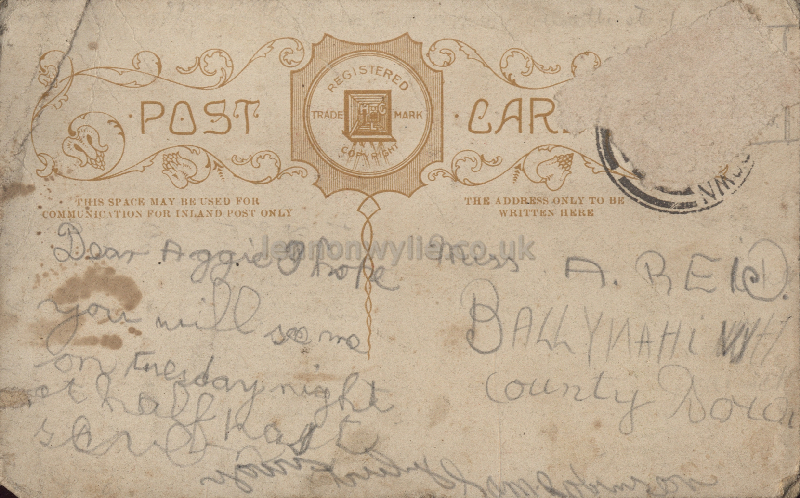 POST CAR
REGISTERED
TRADE MARK
COPYRIGHT
THIS SPACE MAY BE USED FOR
COMMUNICATION FOR INLAND POST ONLY
THE ADDRESS ONLY TO BE
WRITTEN HERE
OWN
lennonwylie.co.uk
Dear Aggie I hope
you will
on tuesday night
at half past
Miss A. REID.
BALLYNAHI
County Down